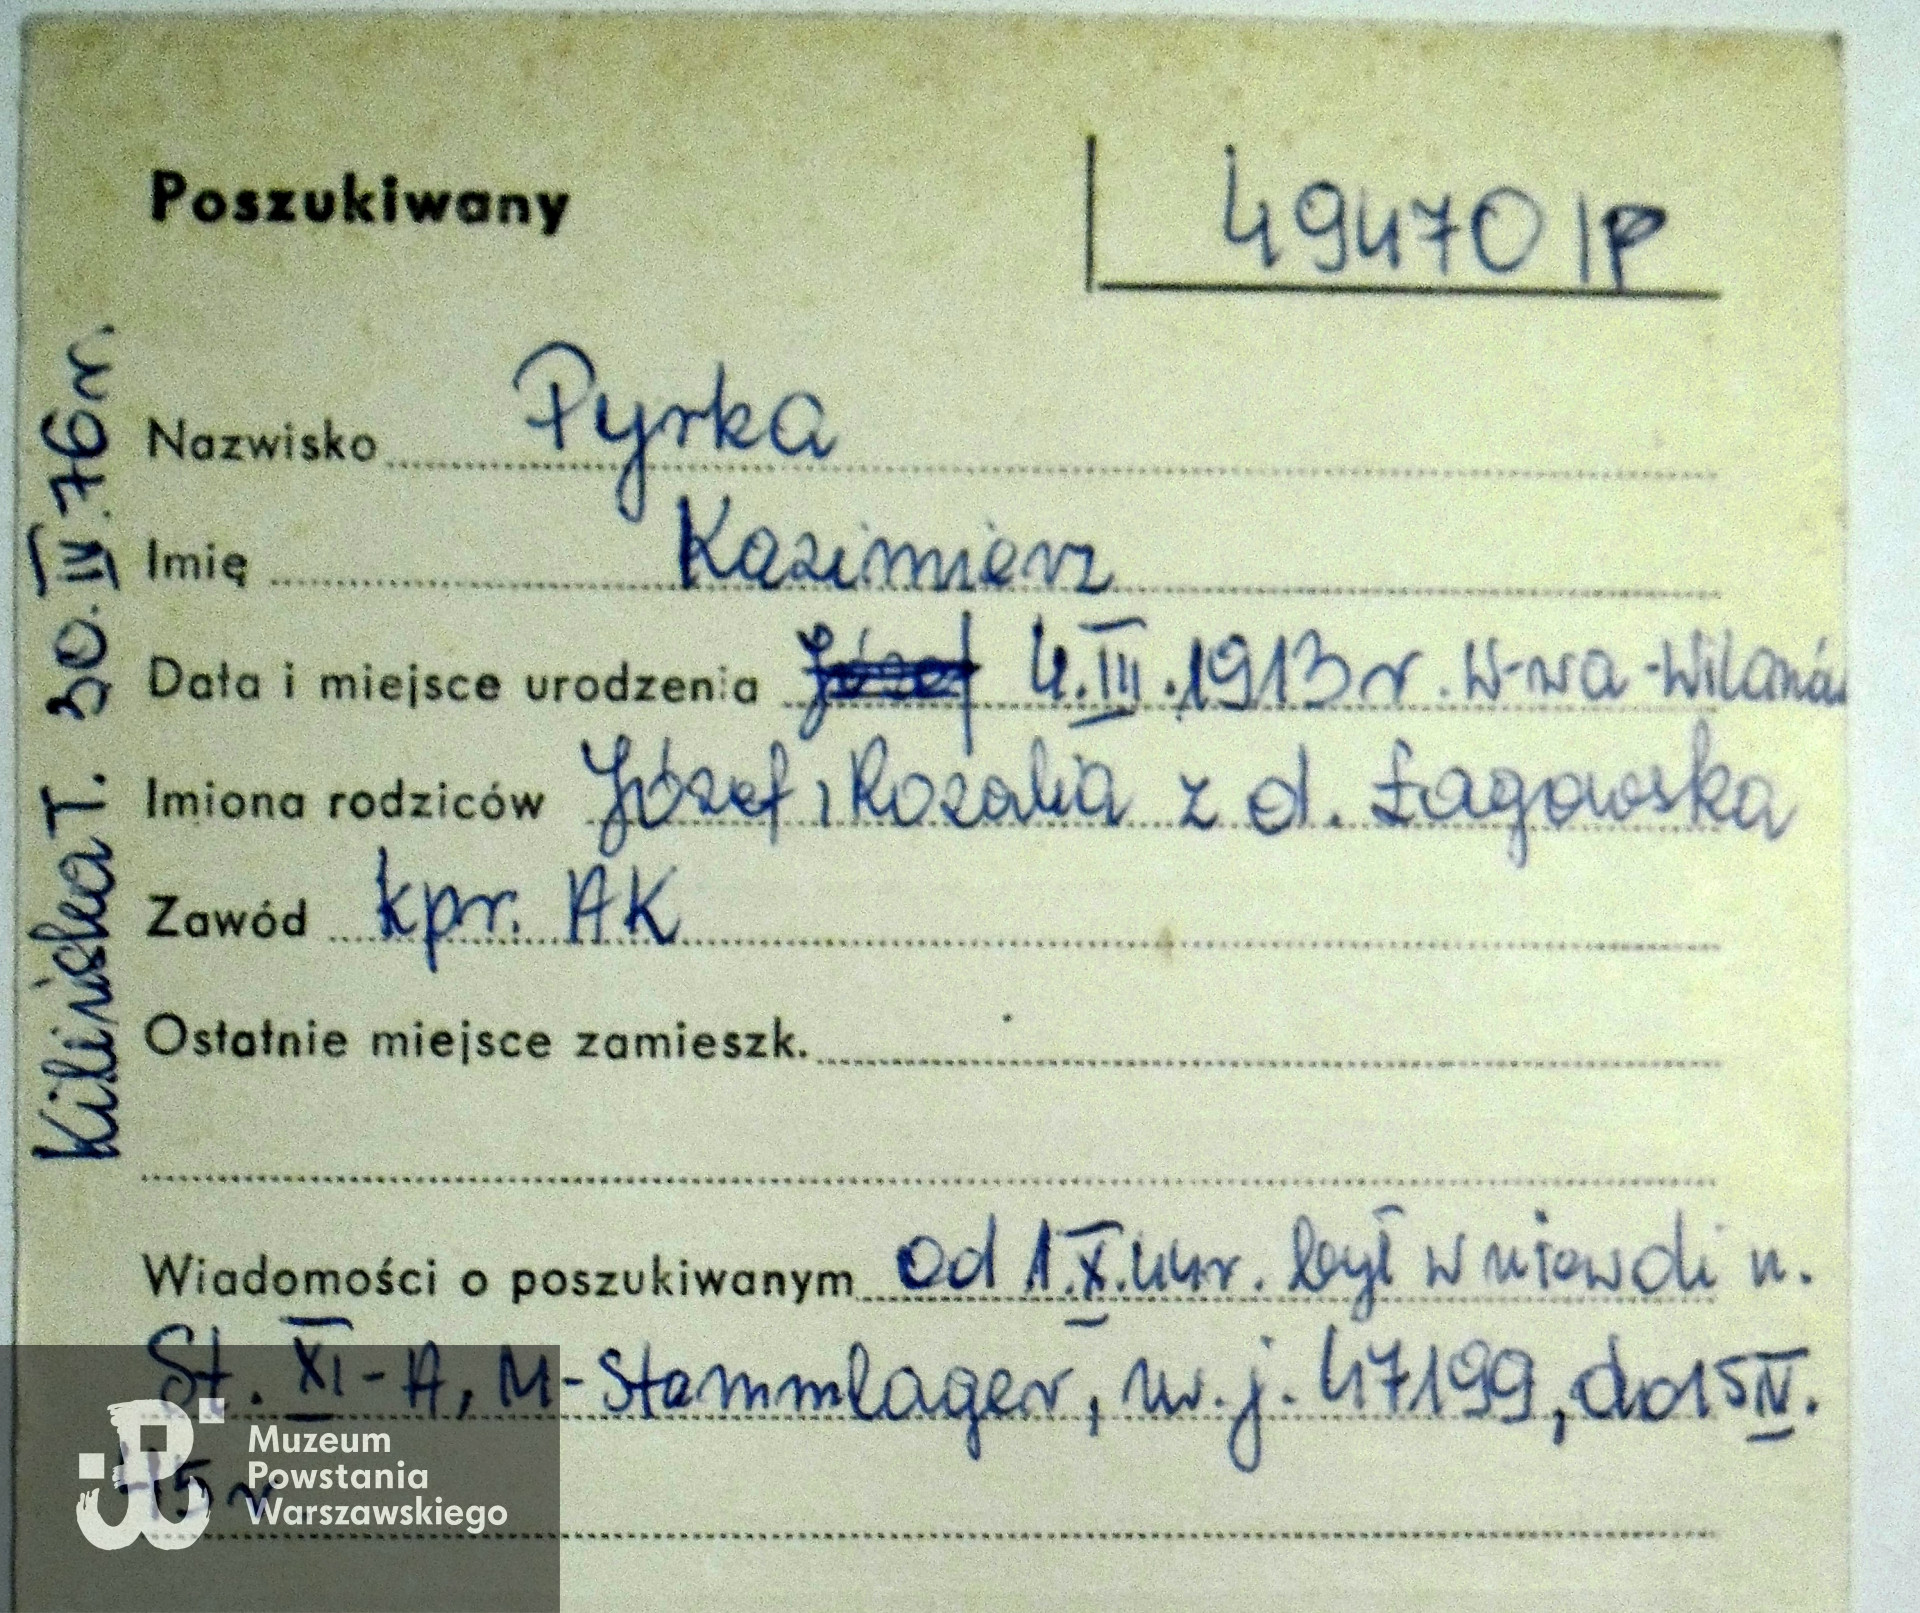 Poszukiwany
49470/P
Nazwisko Pyrka
Imię Kazimierz
Data i miejsce urodzenia Józef 4.III.1913 r. W-wa-Wilanów
Imiona rodziców Józef i Rozalia z d. Łagowska
Zawód kpr. AK
Ostatnie miejsce zamieszk.
Wiadomości o poszukiwanym od 1.X.44r. był w niewoli n.
St. XI-A, M-Stammlager, nr. j. 47199, do 15 IV.
45 r
Kilińska T. 30.IV.76r.
Muzeum
Powstania
Warszawskiego